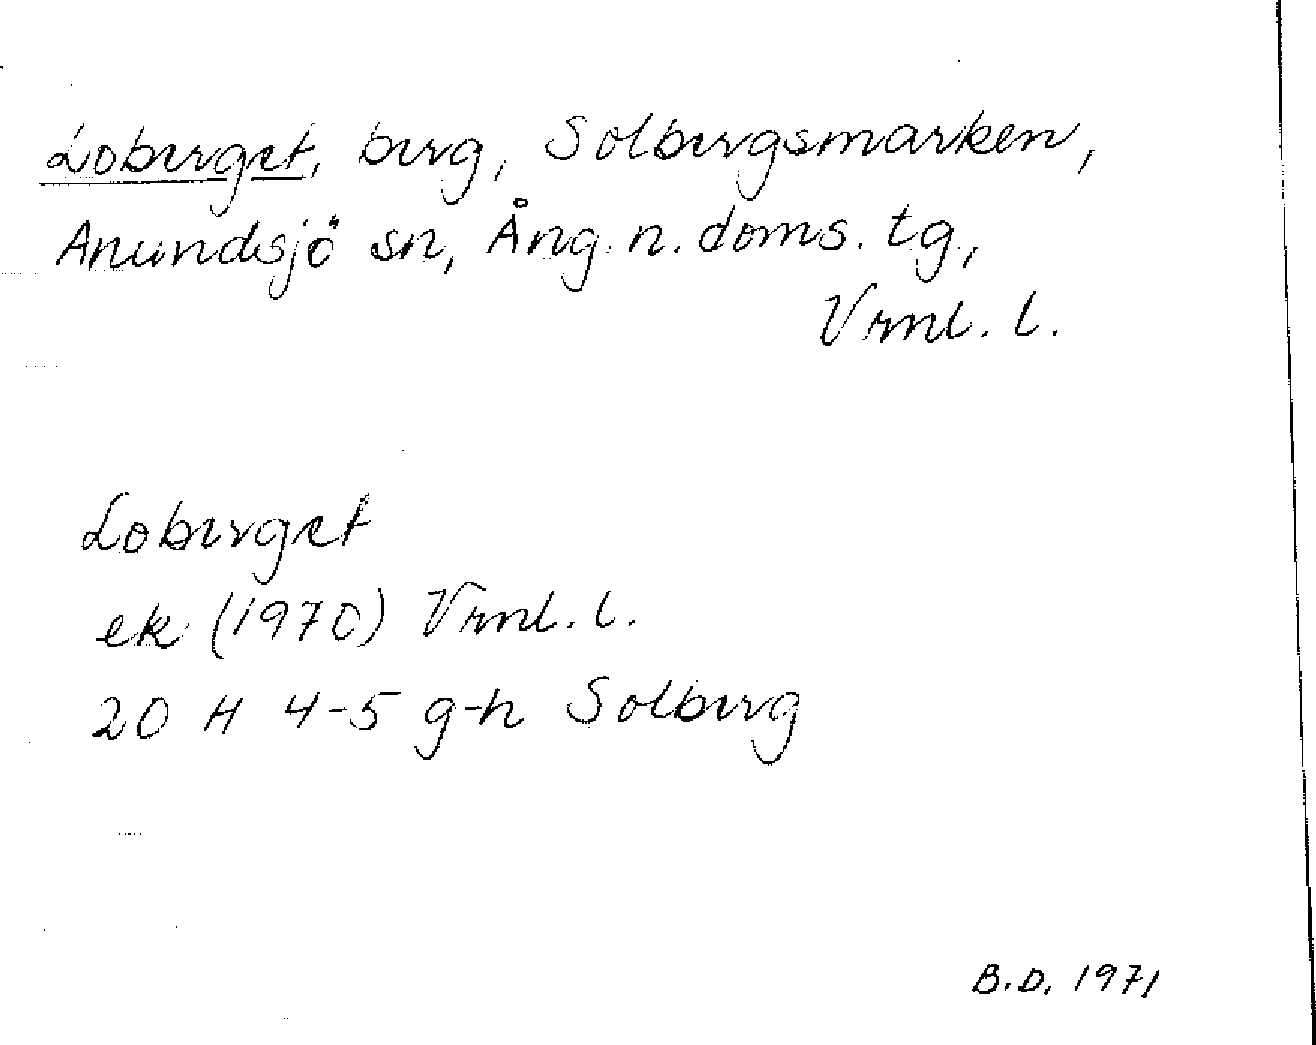 Loberget, berg, Solbergsmarken,
Anundsjö sn, Ång. n. doms. tg,
Vrnl. l.
Loberget
ek (1970) Vrnl. l.
20 H 4-5 g-h Solberg
B.D. 1971